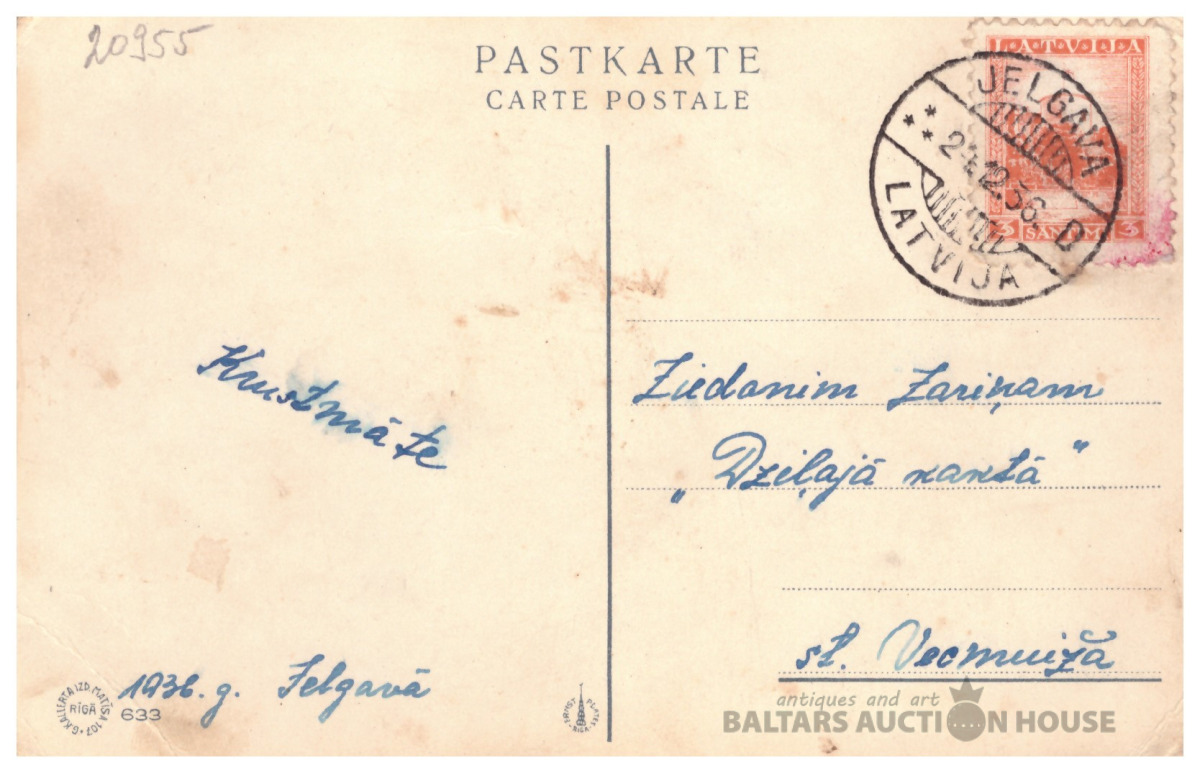 20955
PASTKARTE
CARTE POSTALE
LATVIJA
3 SANTIMI 3
JELGAVA
24.12.36. D
LATVIJA
Krustmāte
Ziedonim Zariņam
„Dziļajā naktā"
st. Vecmuiža
1936. g. Jelgavā
RĪGĀ
633
antiques and art
BALTARS AUCTION HOUSE